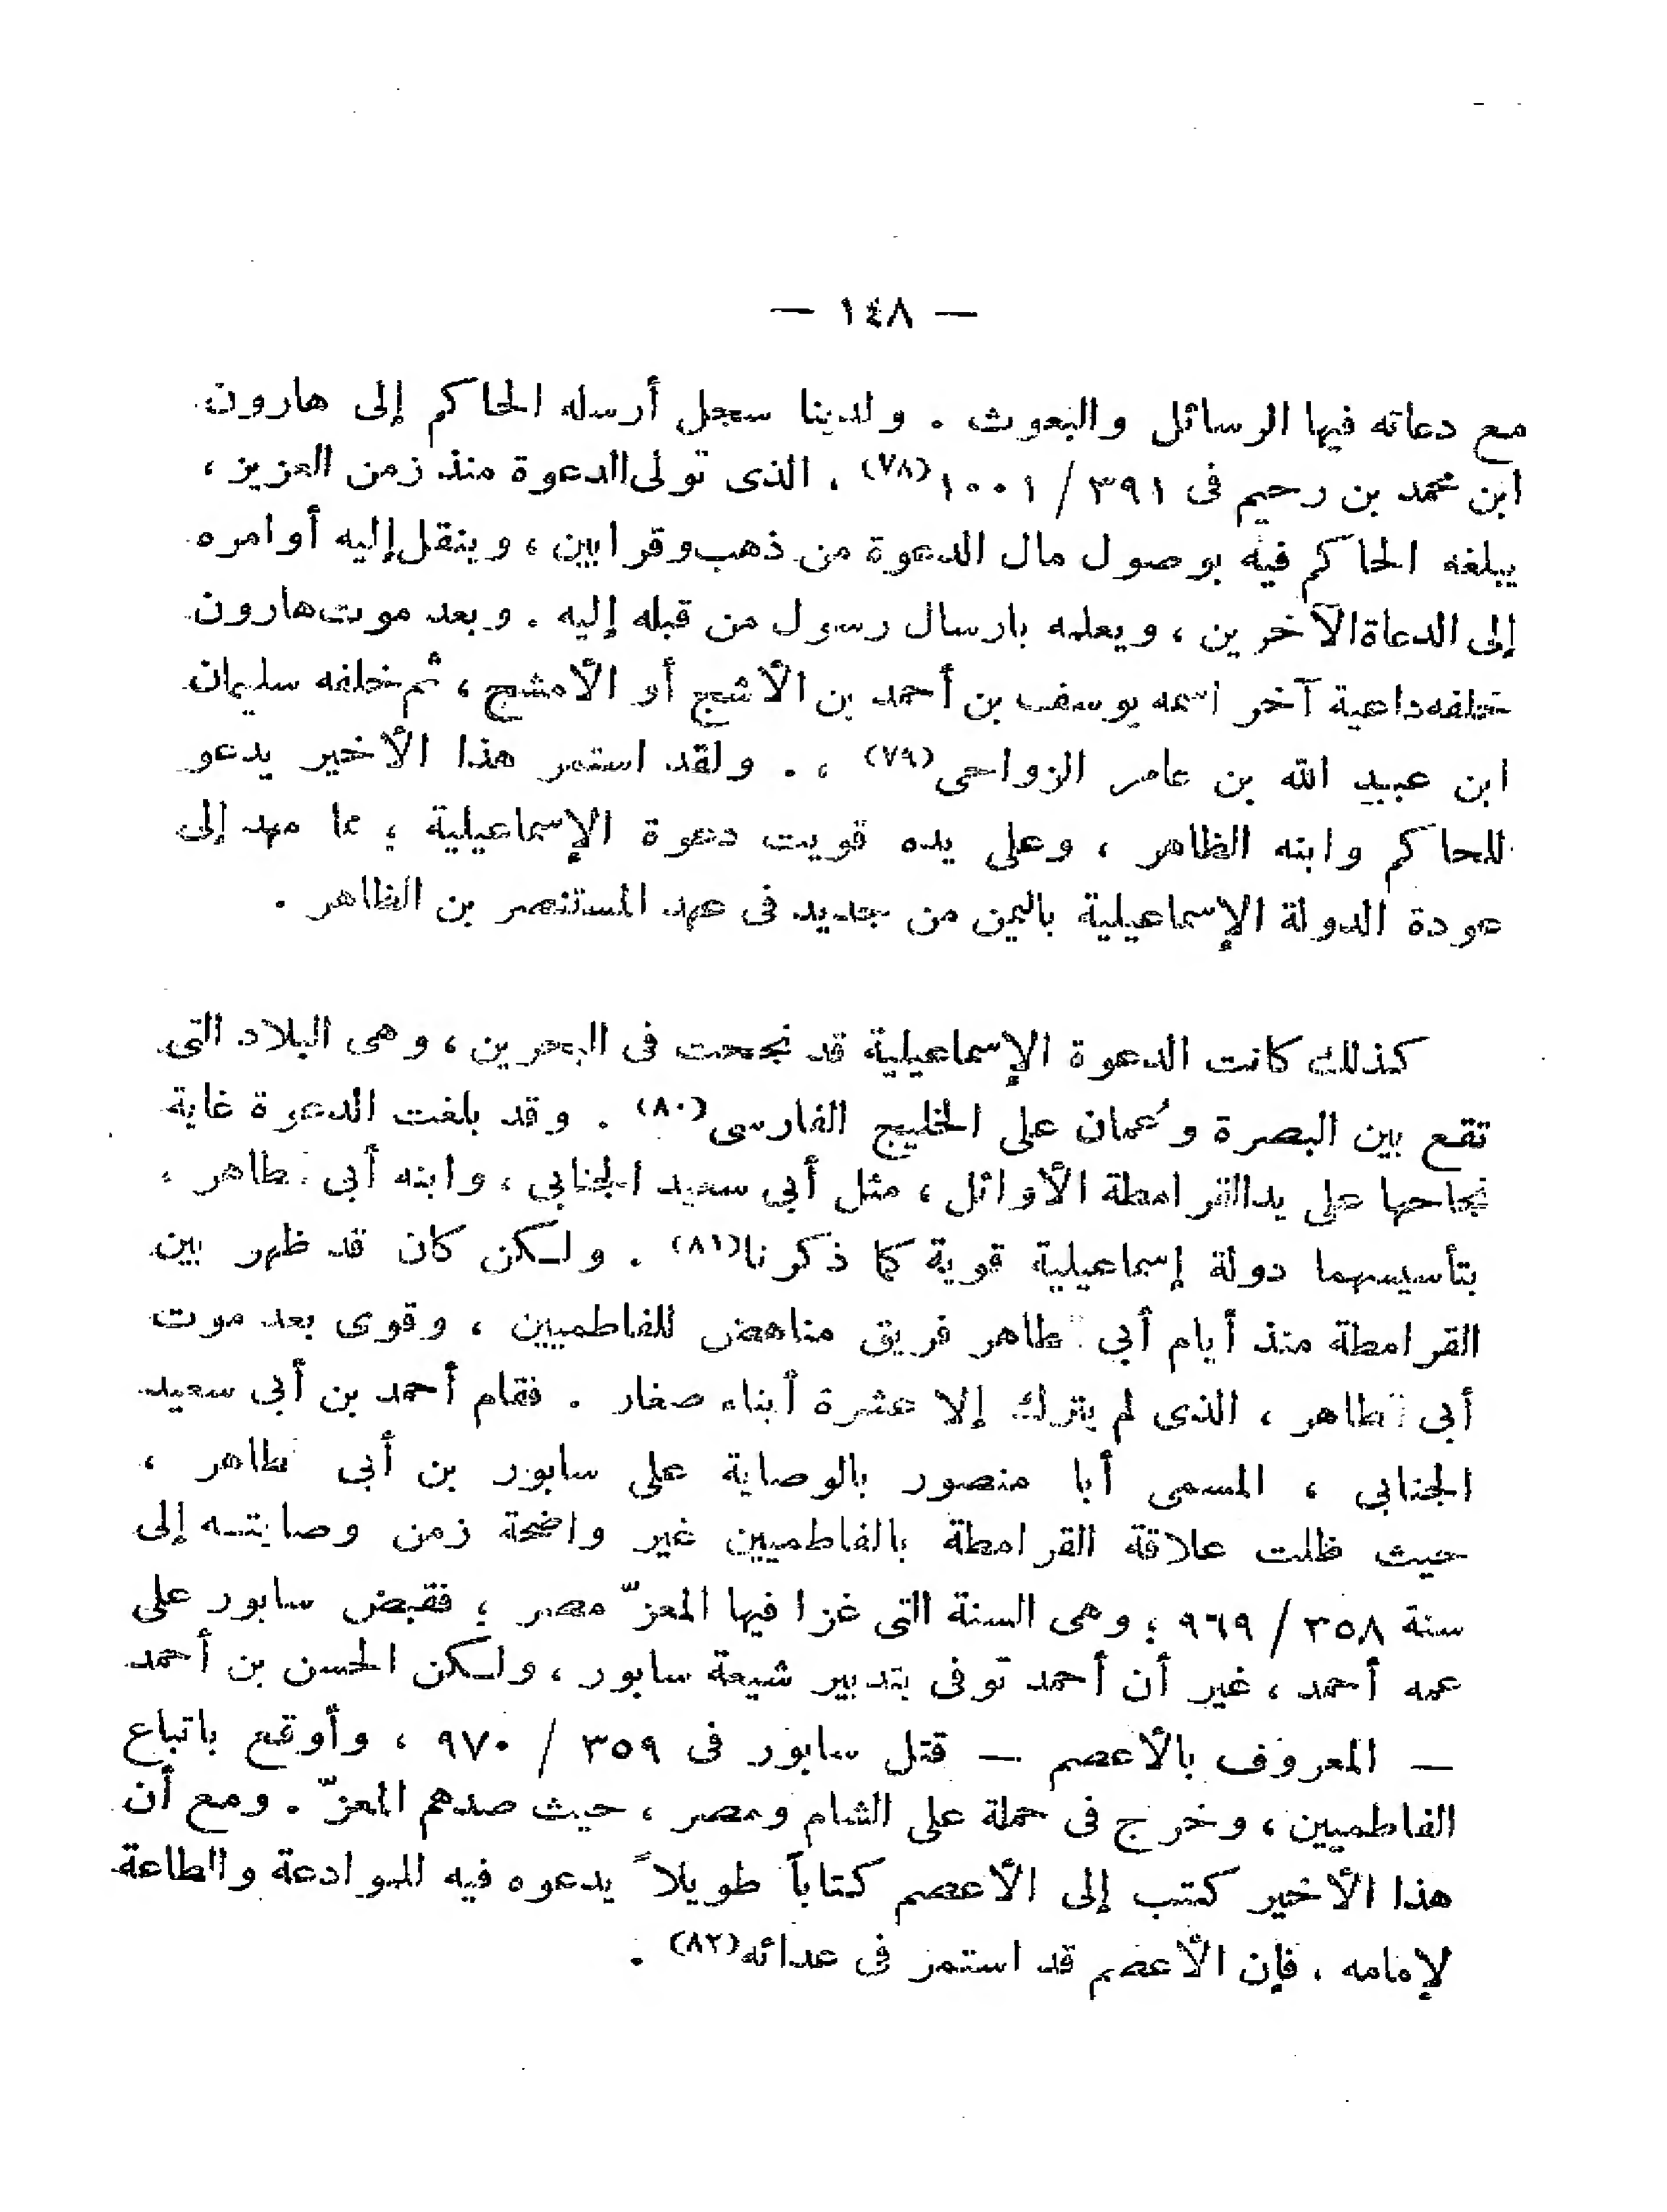 — ١٤٨ —
مع دعاته فيها الرسائل والبعوث . ولدينا سجل أرسله الحاكم إلى هارون
ابن محمد بن رحيم فى ٣٩١ / ١٠٠١(٧٨) ، الذى تولى الدعوة منذ زمن العزيز ،
يبلغه الحاكم فيه بوصول مال الدعوة من ذهب وقرابين ، وينقل إليه أوامره
إلى الدعاة الآخرين ، ويعلمه بارسال رسول من قبله إليه . وبعد موت هارون
خلفه داعية آخر اسمه يوسف بن أحمد بن الأشج أو الأمشج ، ثم خلفه سليمان
ابن عبيد الله بن عامر الزواحى(٧٩) ، . ولقد استمر هذا الأخير يدعو
للحاكم وابنه الظاهر ، وعلى يده قويت دعوة الإسماعيلية ؛ مما مهد إلى
عودة الدولة الإسماعيلية باليمن من جديد فى عهد المستنصر بن الظاهر .
كذلك كانت الدعوة الإسماعيلية قد نجحت فى البحرين ، وهى البلاد التى
تقع بين البصرة وعُمان على الخليج الفارسى(٨٠) . وقد بلغت الدعوة غاية
نجاحها على يد القرامطة الأوائل ، مثل أبى سعيد الجنابى ، وابنه أبى طاهر ،
بتأسيسهما دولة إسماعيلية قوية كما ذكرنا(٨١) . ولكن كان قد ظهر بين
القرامطة منذ أيام أبى طاهر فريق مناهض للفاطميين ، وقوى بعد موت
أبى طاهر ، الذى لم يترك إلا عشرة أبناء صغار . فقام أحمد بن أبى سعيد
الجنابى ، المسمى أبا منصور بالوصاية على سابور بن أبى طاهر ،
حيث ظلت علاقة القرامطة بالفاطميين غير واضحة زمن وصايته إلى
سنة ٣٥٨ / ٩٦٩ ؛ وهى السنة التى غزا فيها المعزّ مصر ؛ فقبض سابور على
عمه أحمد ، غير أن أحمد توفى بتدبير شيعة سابور ، ولكن الحسن بن أحمد
— المعروف بالأعصم — قتل سابور فى ٣٥٩ / ٩٧٠ ، وأوقع باتباع
الفاطميين ، وخرج فى حملة على الشام ومصر ، حيث صدهم المعزّ . ومع أن
هذا الأخير كتب إلى الأعصم كتاباً طويلاً يدعوه فيه للموادعة والطاعة
لإمامه ، فإن الأعصم قد استمر فى عدائه(٨٢) .